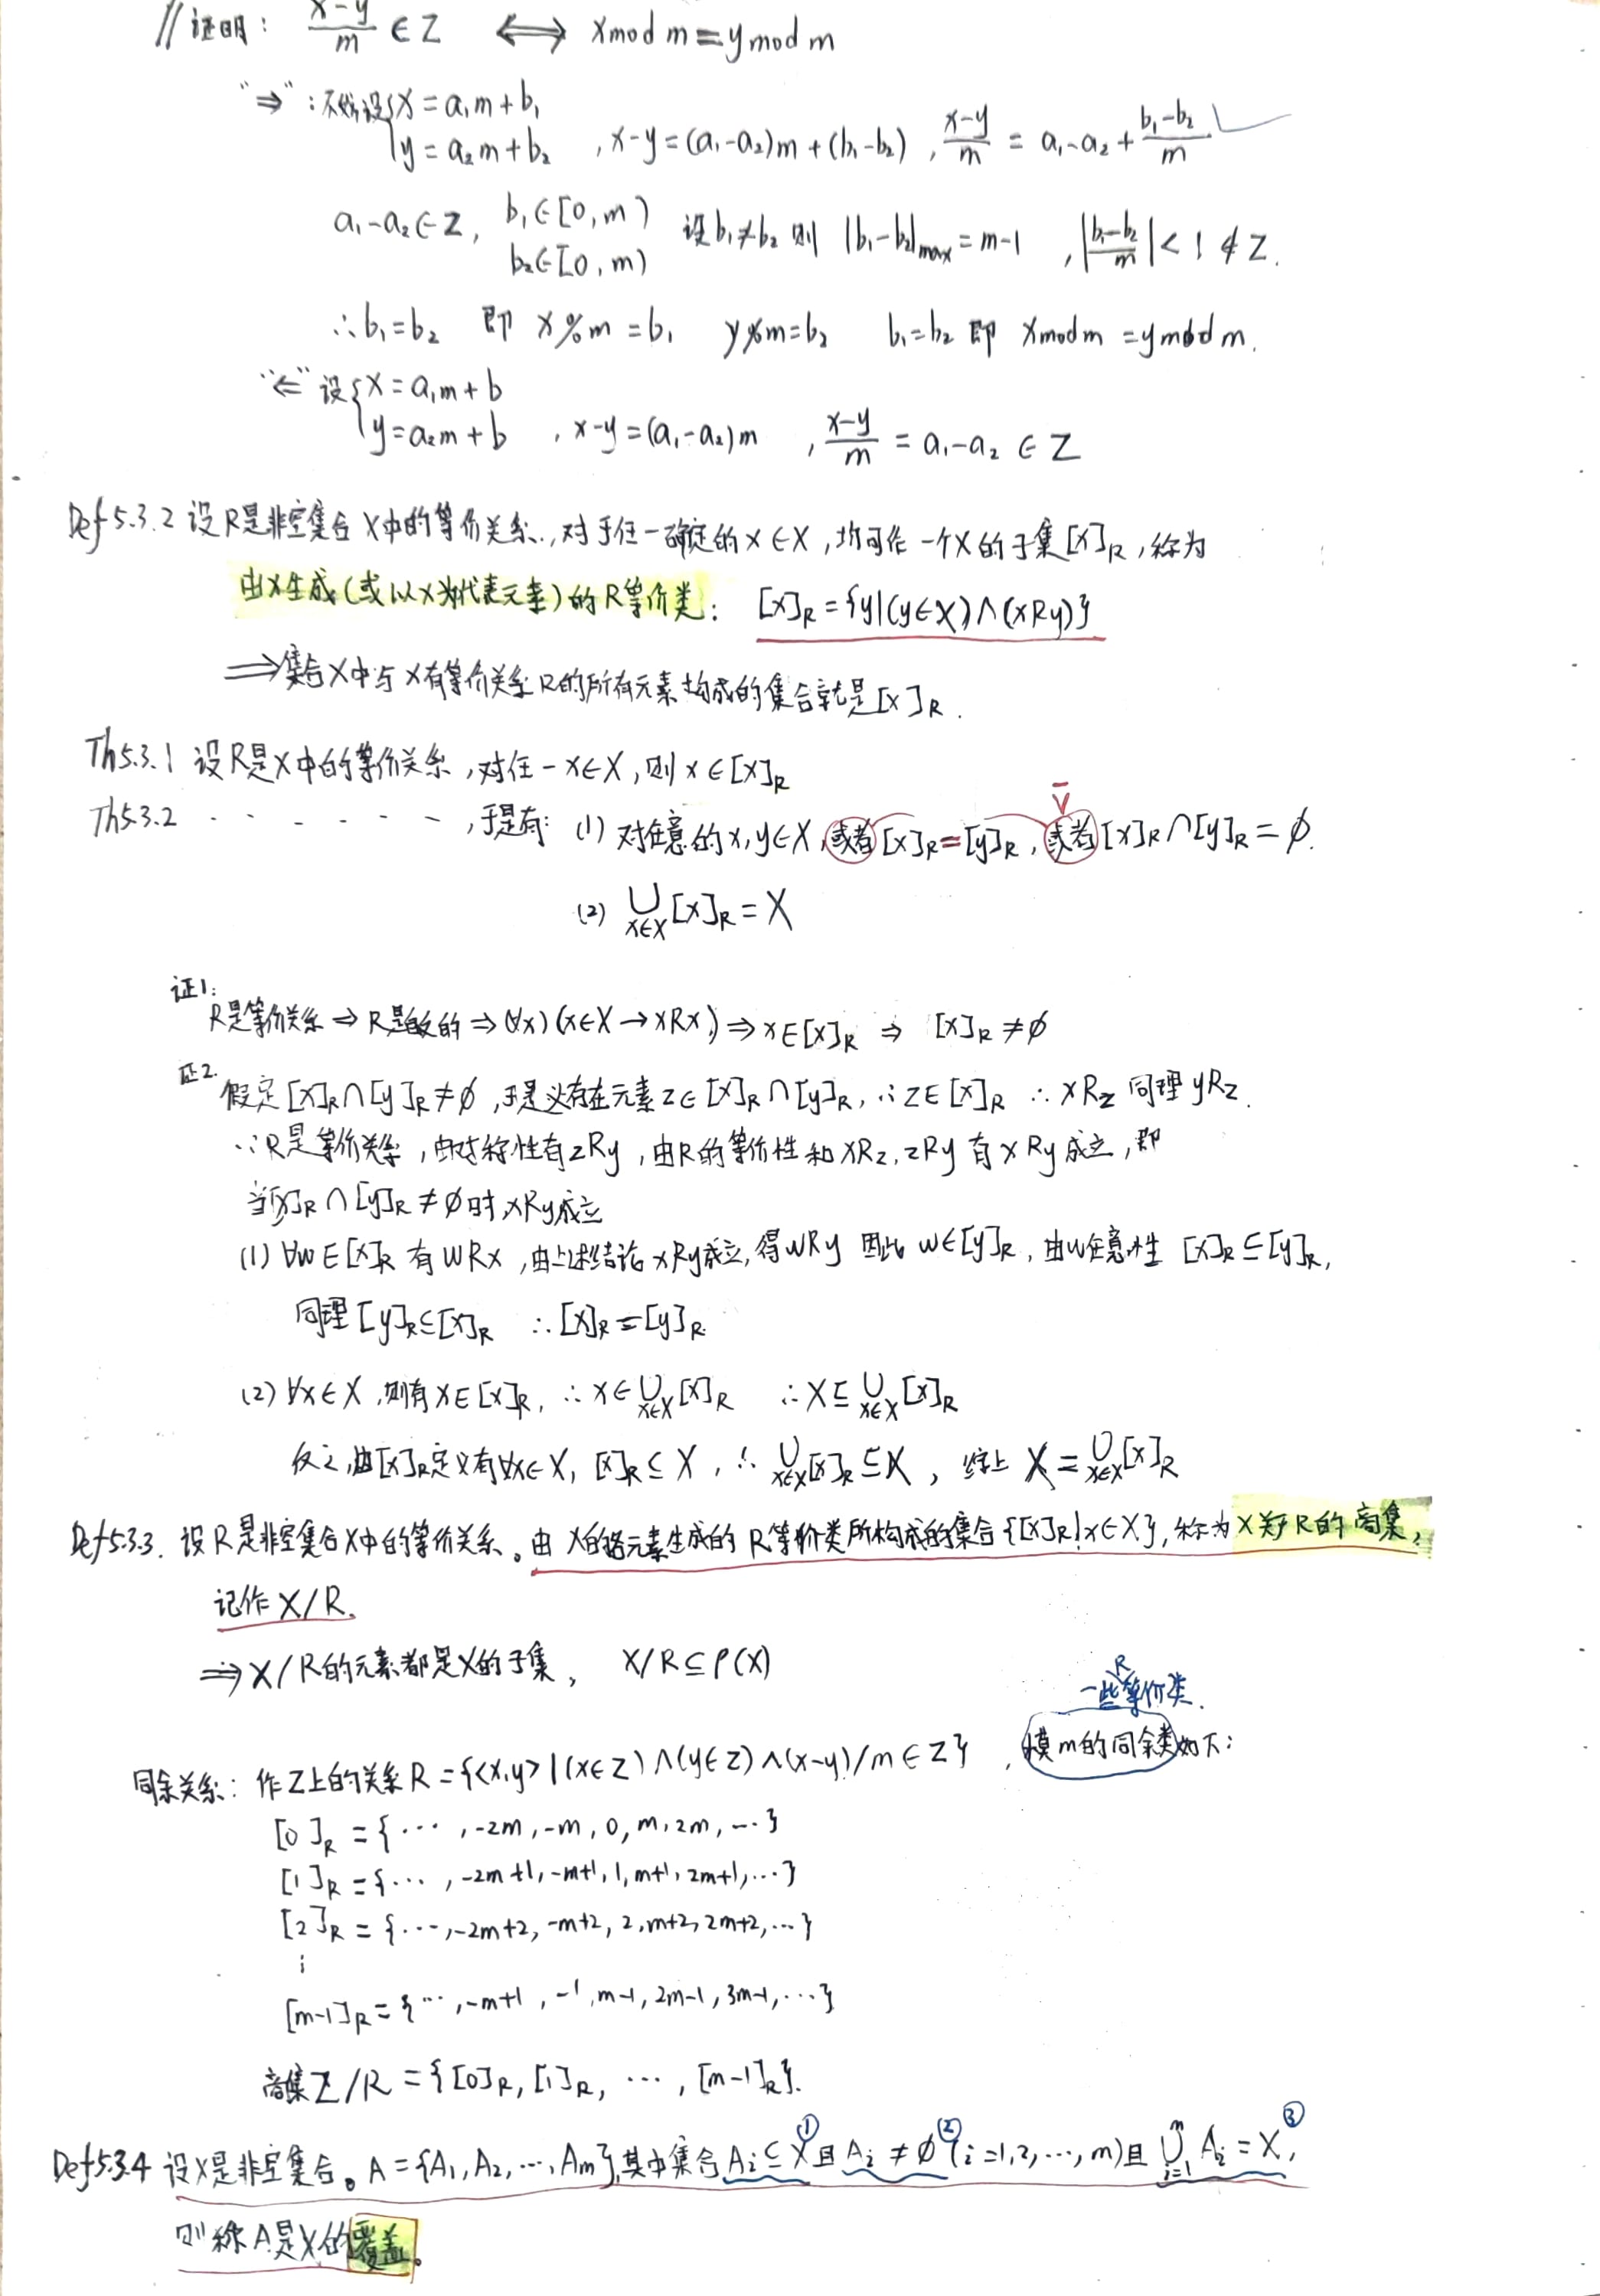 //证明: (x-y)/m ∈ Z ⟺ x mod m = y mod m
"⇒": 不妨设{x = a₁m + b₁
y = a₂m + b₂ , x-y = (a₁-a₂)m + (b₁-b₂) , (x-y)/m = a₁-a₂ + (b₁-b₂)/m
a₁-a₂ ∈ Z, b₁∈[0, m) 设b₁≠b₂ 则 |b₁-b₂|max = m-1 , |(b₁-b₂)/m| < 1 ∉ Z.
b₂∈[0, m)
∴b₁=b₂ 即 x%m = b₁ y%m = b₂ b₁=b₂ 即 x mod m = y mod m.
"⇐" 设{x = a₁m + b
y = a₂m + b , x-y = (a₁-a₂)m , (x-y)/m = a₁-a₂ ∈ Z
Def 5.3.2 设R是非空集合X中的等价关系,对于任一确定的x∈X, 均可作一个X的子集[x]R, 称为
由x生成(或以x为代表元素)的R等价类: [x]R = {y|(y∈X)∧(xRy)}
⟹集合X中与x有等价关系R的所有元素构成的集合就是[x]R.
Th5.3.1 设R是X中的等价关系,对任一x∈X,则x∈[x]R
⊽
Th5.3.2 · - · - · - ,于是有: (1) 对任意的x,y∈X,或者[x]R=[y]R,或者[x]R∩[y]R=∅.
(2) ∪x∈X [x]R = X
证1:
R是等价关系⇒R是自反的⇒(∀x)(x∈X→xRx)⇒x∈[x]R ⇒ [x]R≠∅
证2.
假定[x]R∩[y]R≠∅,于是必存在元素z∈[x]R∩[y]R, ∵z∈[x]R ∴xRz 同理yRz.
∵R是等价关系,由对称性有zRy,由R的等价性和xRz,zRy有xRy成立,即
当[x]R∩[y]R≠∅时,xRy成立
(1) ∀w∈[x]R 有wRx,由上述结论xRy成立,得wRy 因此w∈[y]R, 由w任意性 [x]R⊆[y]R,
同理[y]R⊆[x]R ∴[x]R=[y]R.
(2) ∀x∈X,则有x∈[x]R, ∴x∈∪x∈X [x]R ∴X⊆∪x∈X [x]R
反之,由[x]R定义有∀x∈X, [x]R⊆X, ∴∪x∈X [x]R⊆X, 综上 X=∪x∈X [x]R
Def5.3.3. 设R是非空集合X中的等价关系。由X的各元素生成的R等价类所构成的集合{[x]R|x∈X},称为X关于R的商集,
记作X/R.
⟹X/R的元素都是X的子集, X/R⊆ρ(X)
R
一些等价类.
同余关系: 作Z上的关系R={<x,y>|(x∈Z)∧(y∈Z)∧(x-y)/m∈Z} , 模m的同余类如下:
[0]R = {…, -2m, -m, 0, m, 2m, …}
[1]R = {…, -2m+1, -m+1, 1, m+1, 2m+1, …}
[2]R = {…, -2m+2, -m+2, 2, m+2, 2m+2, …}
⋮
[m-1]R = {…, -m+1, -1, m-1, 2m-1, 3m-1, …}
商集Z/R = {[0]R, [1]R, …, [m-1]R}.
① ② ③
Def5.3.4 设X是非空集合。A={A₁, A₂, …, Am},其中集合Ai⊆X且Ai≠∅(i=1,2,…,m)且 ∪ᵢ₌₁ᵐ Ai=X,
则称A是X的覆盖。